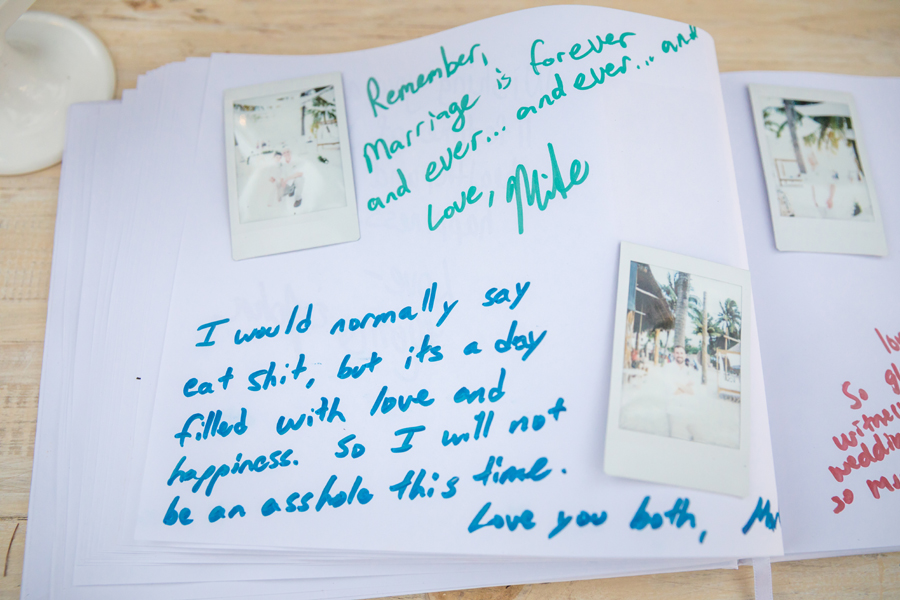 Remember,
Marriage is forever
and ever... and ever... and
Love, Mike
I would normally say
eat shit, but its a day
filled with love and
happiness. So I will not
be an asshole this time.
Love you both,
So
wedding
so